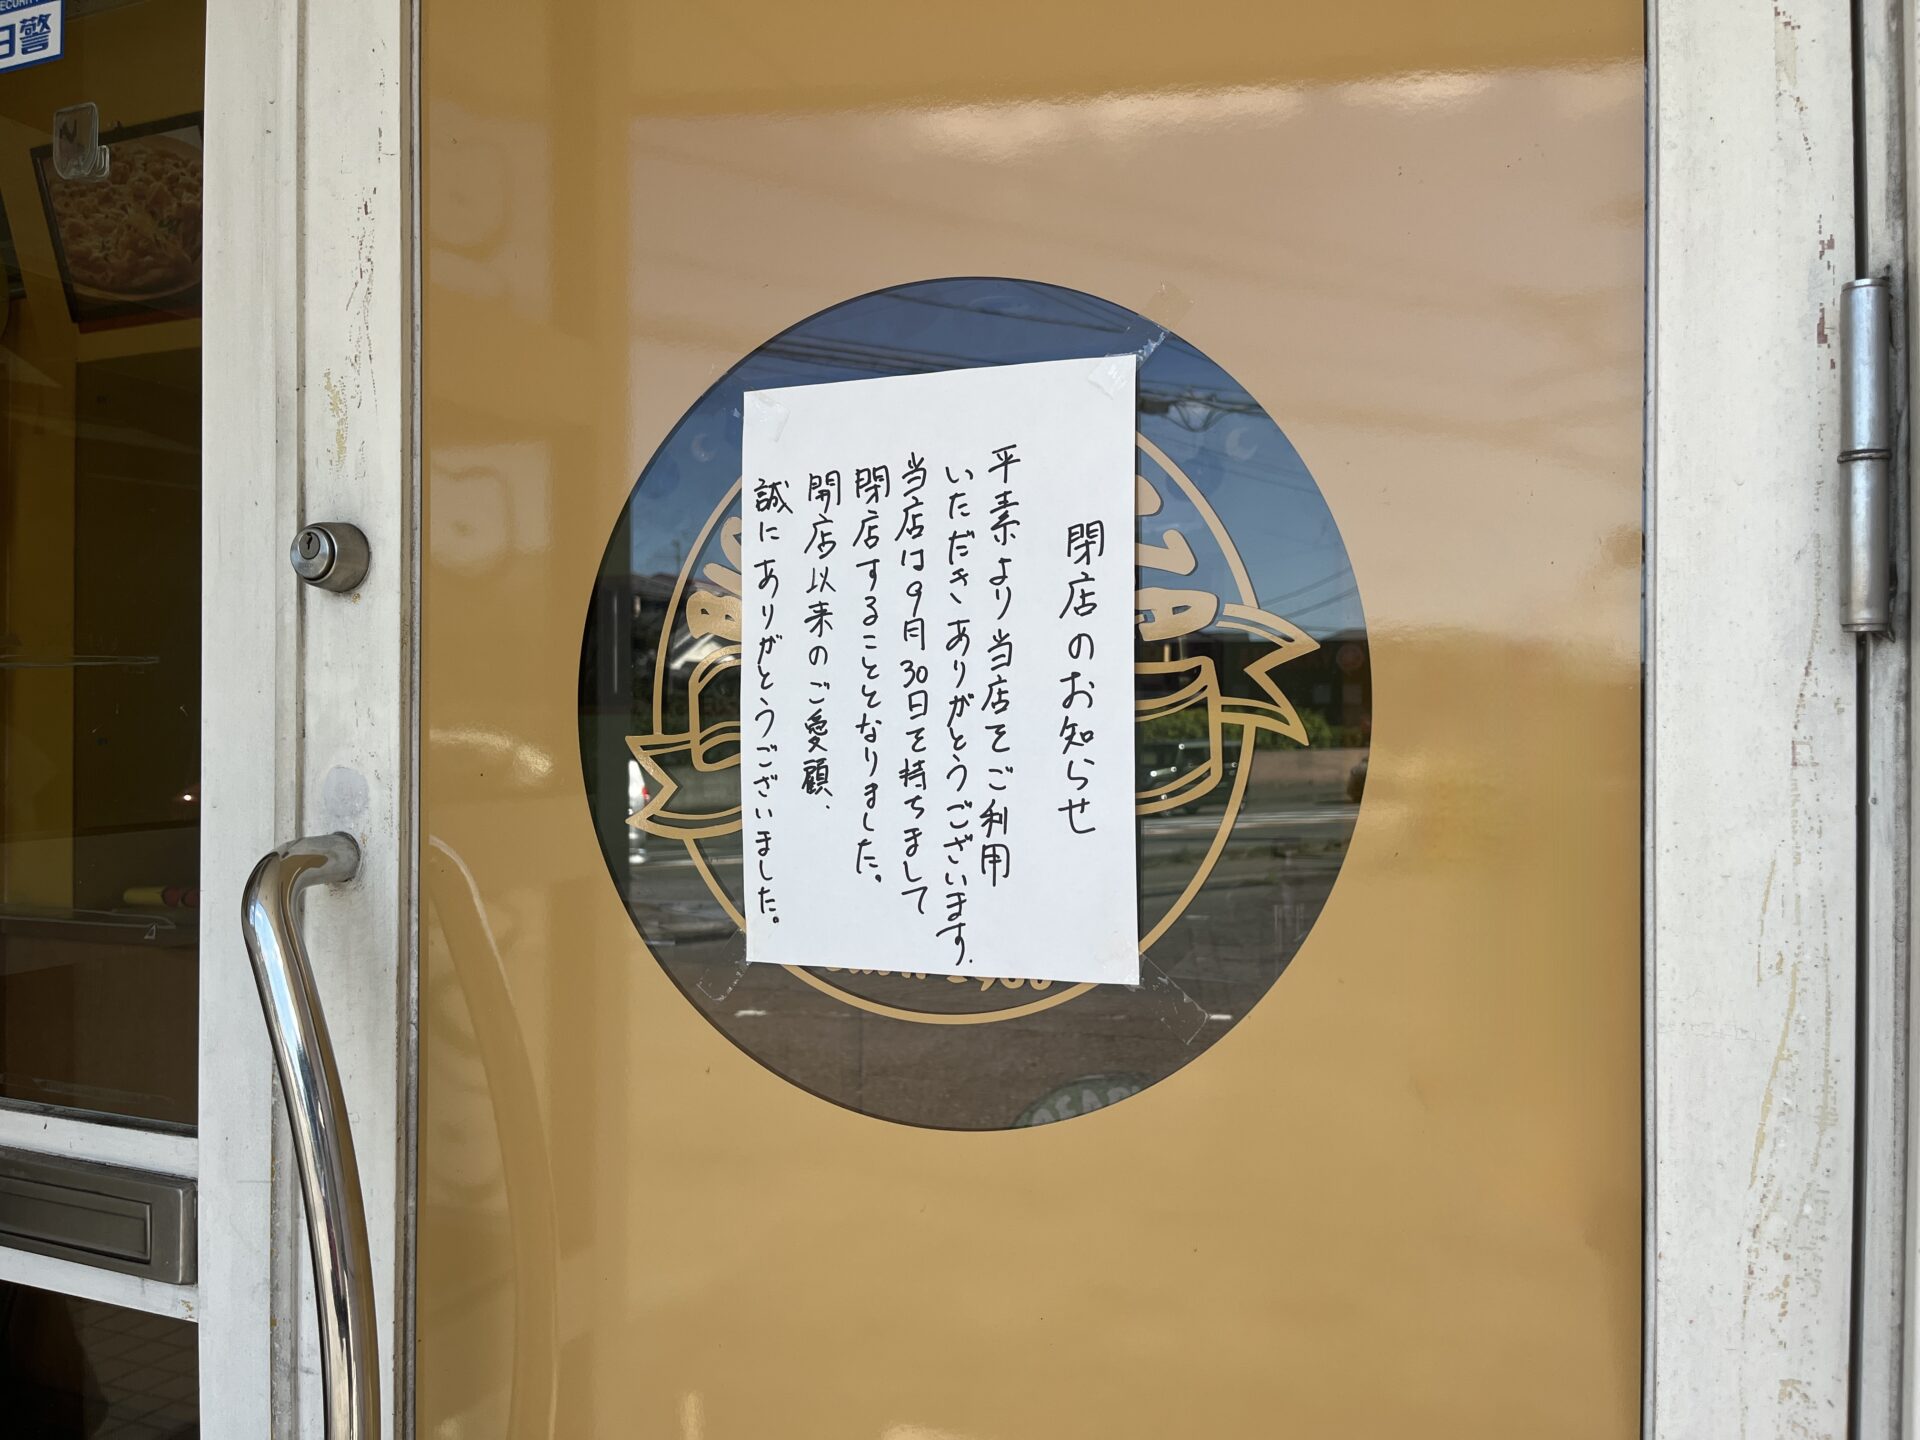 閉店のお知らせ
平素より当店をご利用
いただきありがとうございます.
当店は9月30日を持ちまして
閉店することとなりました。
開店以来のご愛顧、
誠にありがとうございました。